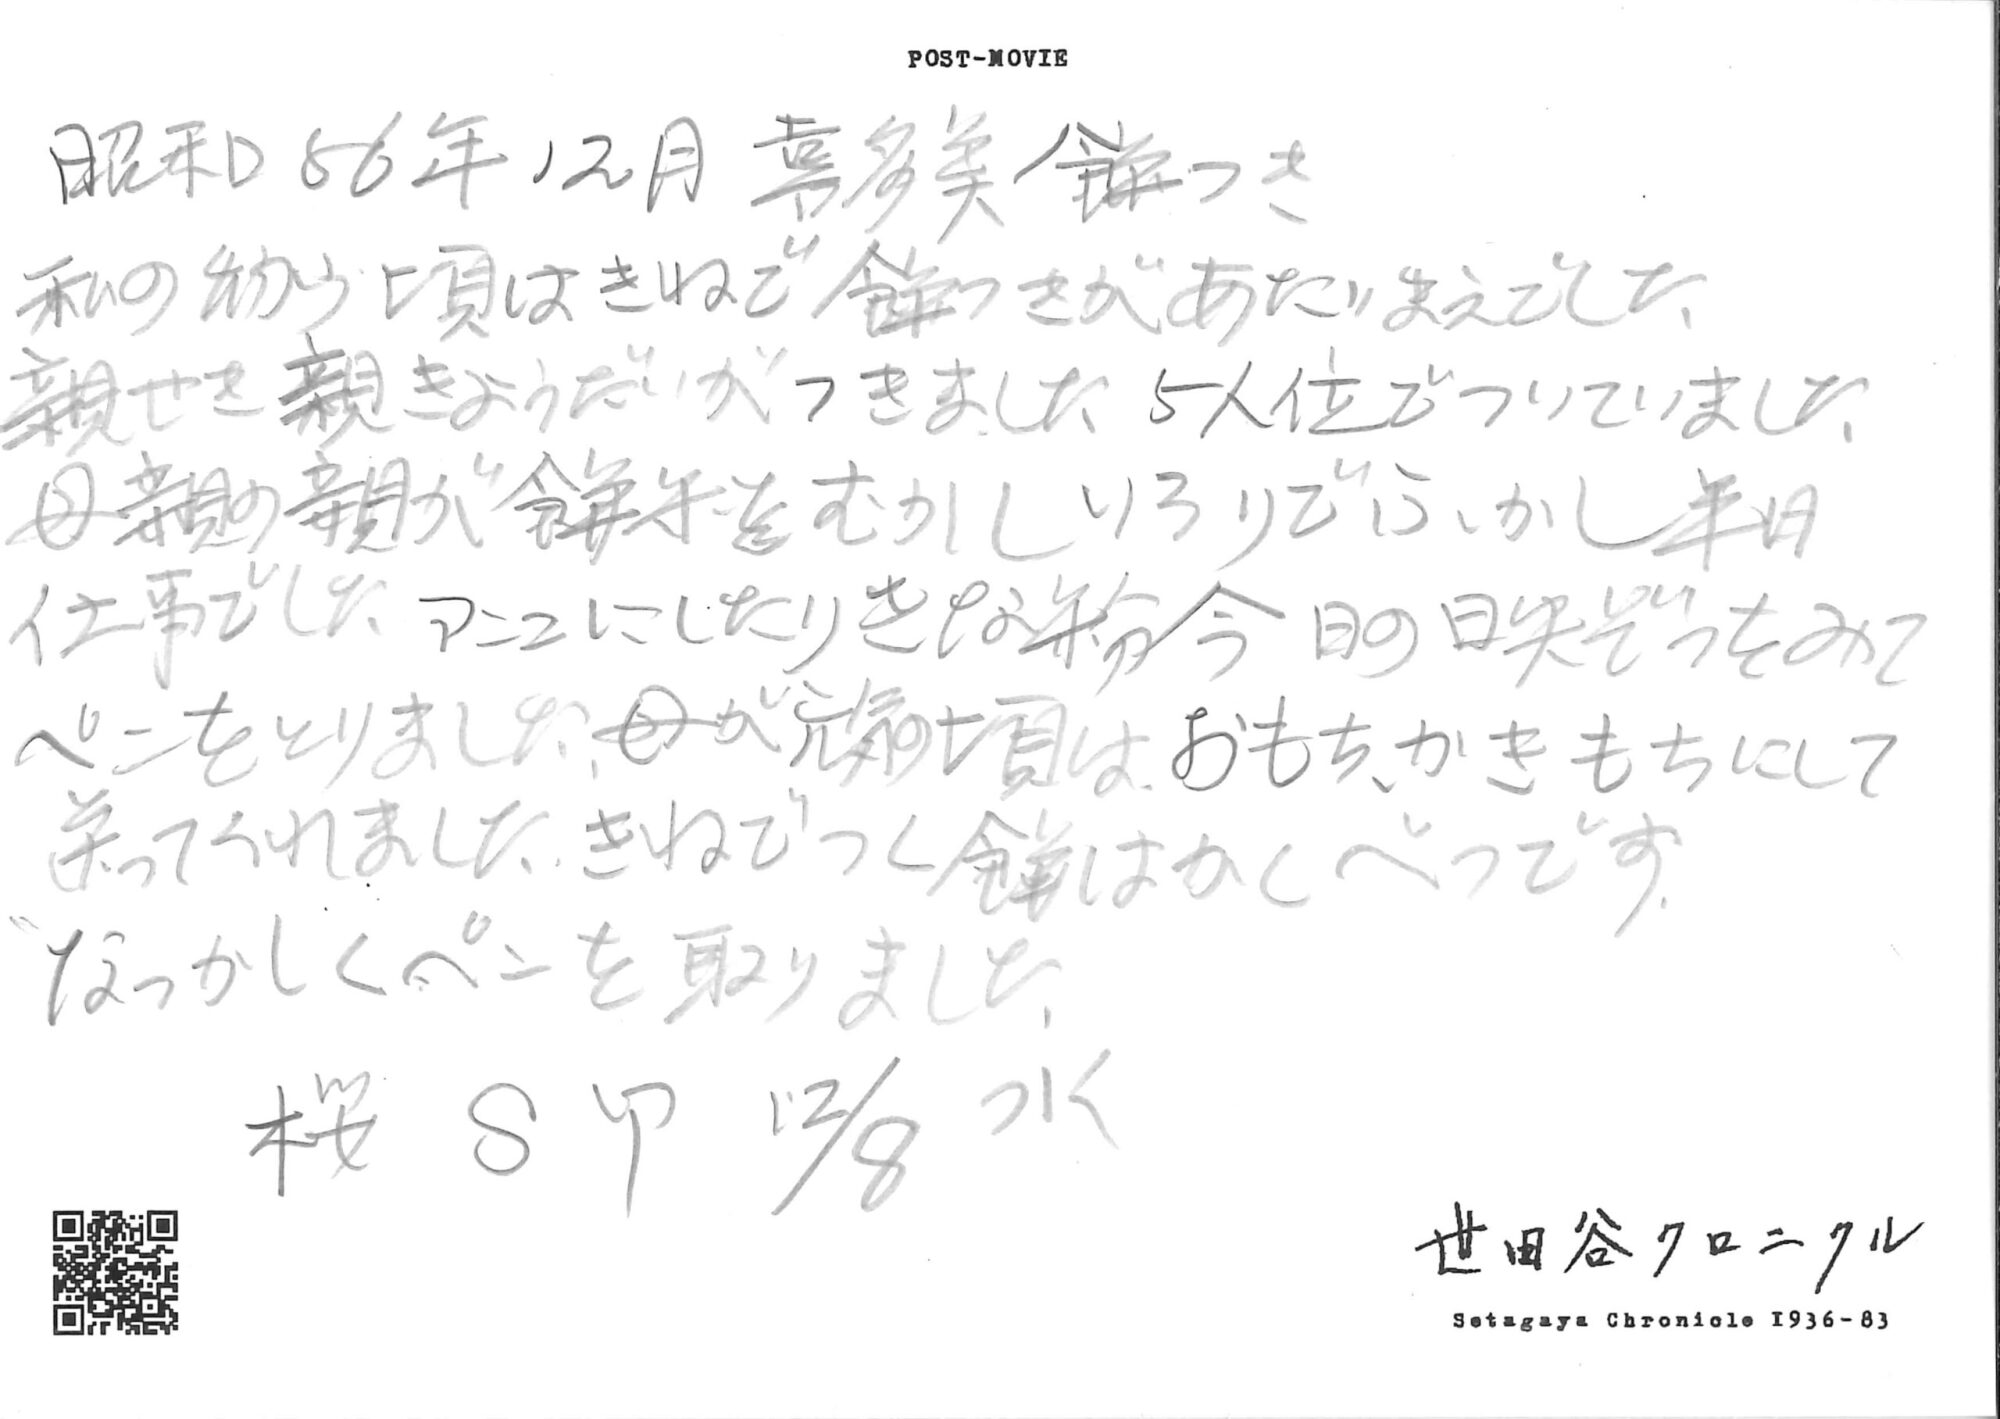 POST-MOVIE
昭和56年12月 喜多美 餅つき
私の幼い頃はきねで餅つきがあたりまえでした、
親せき親きょうだいがつきました 5人位でついていました、
母親の親が餅をむかしいろりでふかし半日
仕事でした アンコにしたりきな粉 今日の日 をみて
ペンをとりました、母が元気の頃は、おもち、かきもちにして
送ってくれました、きねでつく餅はかくべつです、
なつかしくペンを取りました、
桜 S 12/8 水
世田谷クロニクル
Setagaya Chronicle 1936-83